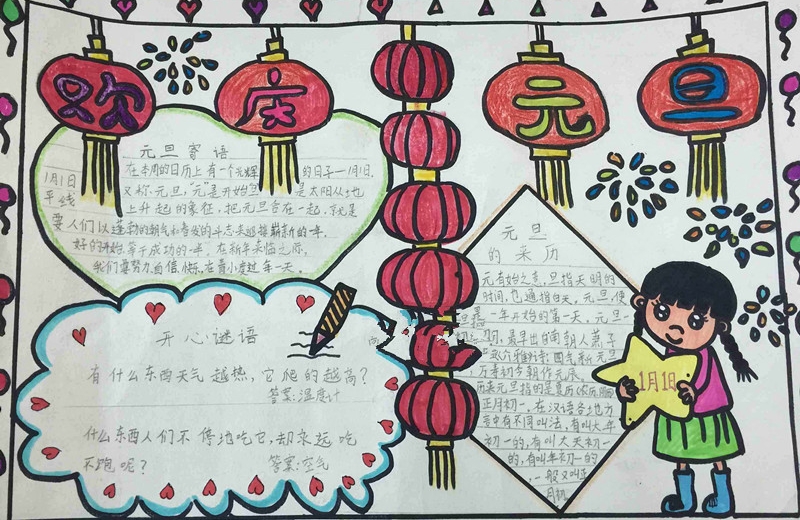 欢 庆 元 旦
元旦寄语
在本周的日历上有一个光辉的日子一月1日.
1月1日又称元旦,"元"是开始
是太阳从地
上升起的象征,把元旦合在一起,就是
要人们以蓬勃的朝气和奋发的斗志来迎接崭新的一年,
好的开始,等于成功的一半,在新年来临之际,
我们要努力,自信,快乐,在青小度过每一天。
开心谜语
有什么东西天气越热,它爬的越高?
答案:温度计
什么东西人们不停地吃它,却永远吃
不饱呢?
答案:空气
元旦
的来历
元有始之意,旦指天明的
时间,也通指白天。元旦,便
一年开始的第一天。元旦一
最早出自南朝人萧子
万寿初今朝
历来元旦指的是夏历
正月初一,在汉语各地方
言中有不同叫法,有叫大年
初一的,有叫大天初一
的,有叫年初一的
一般又叫正
月初
1月1日